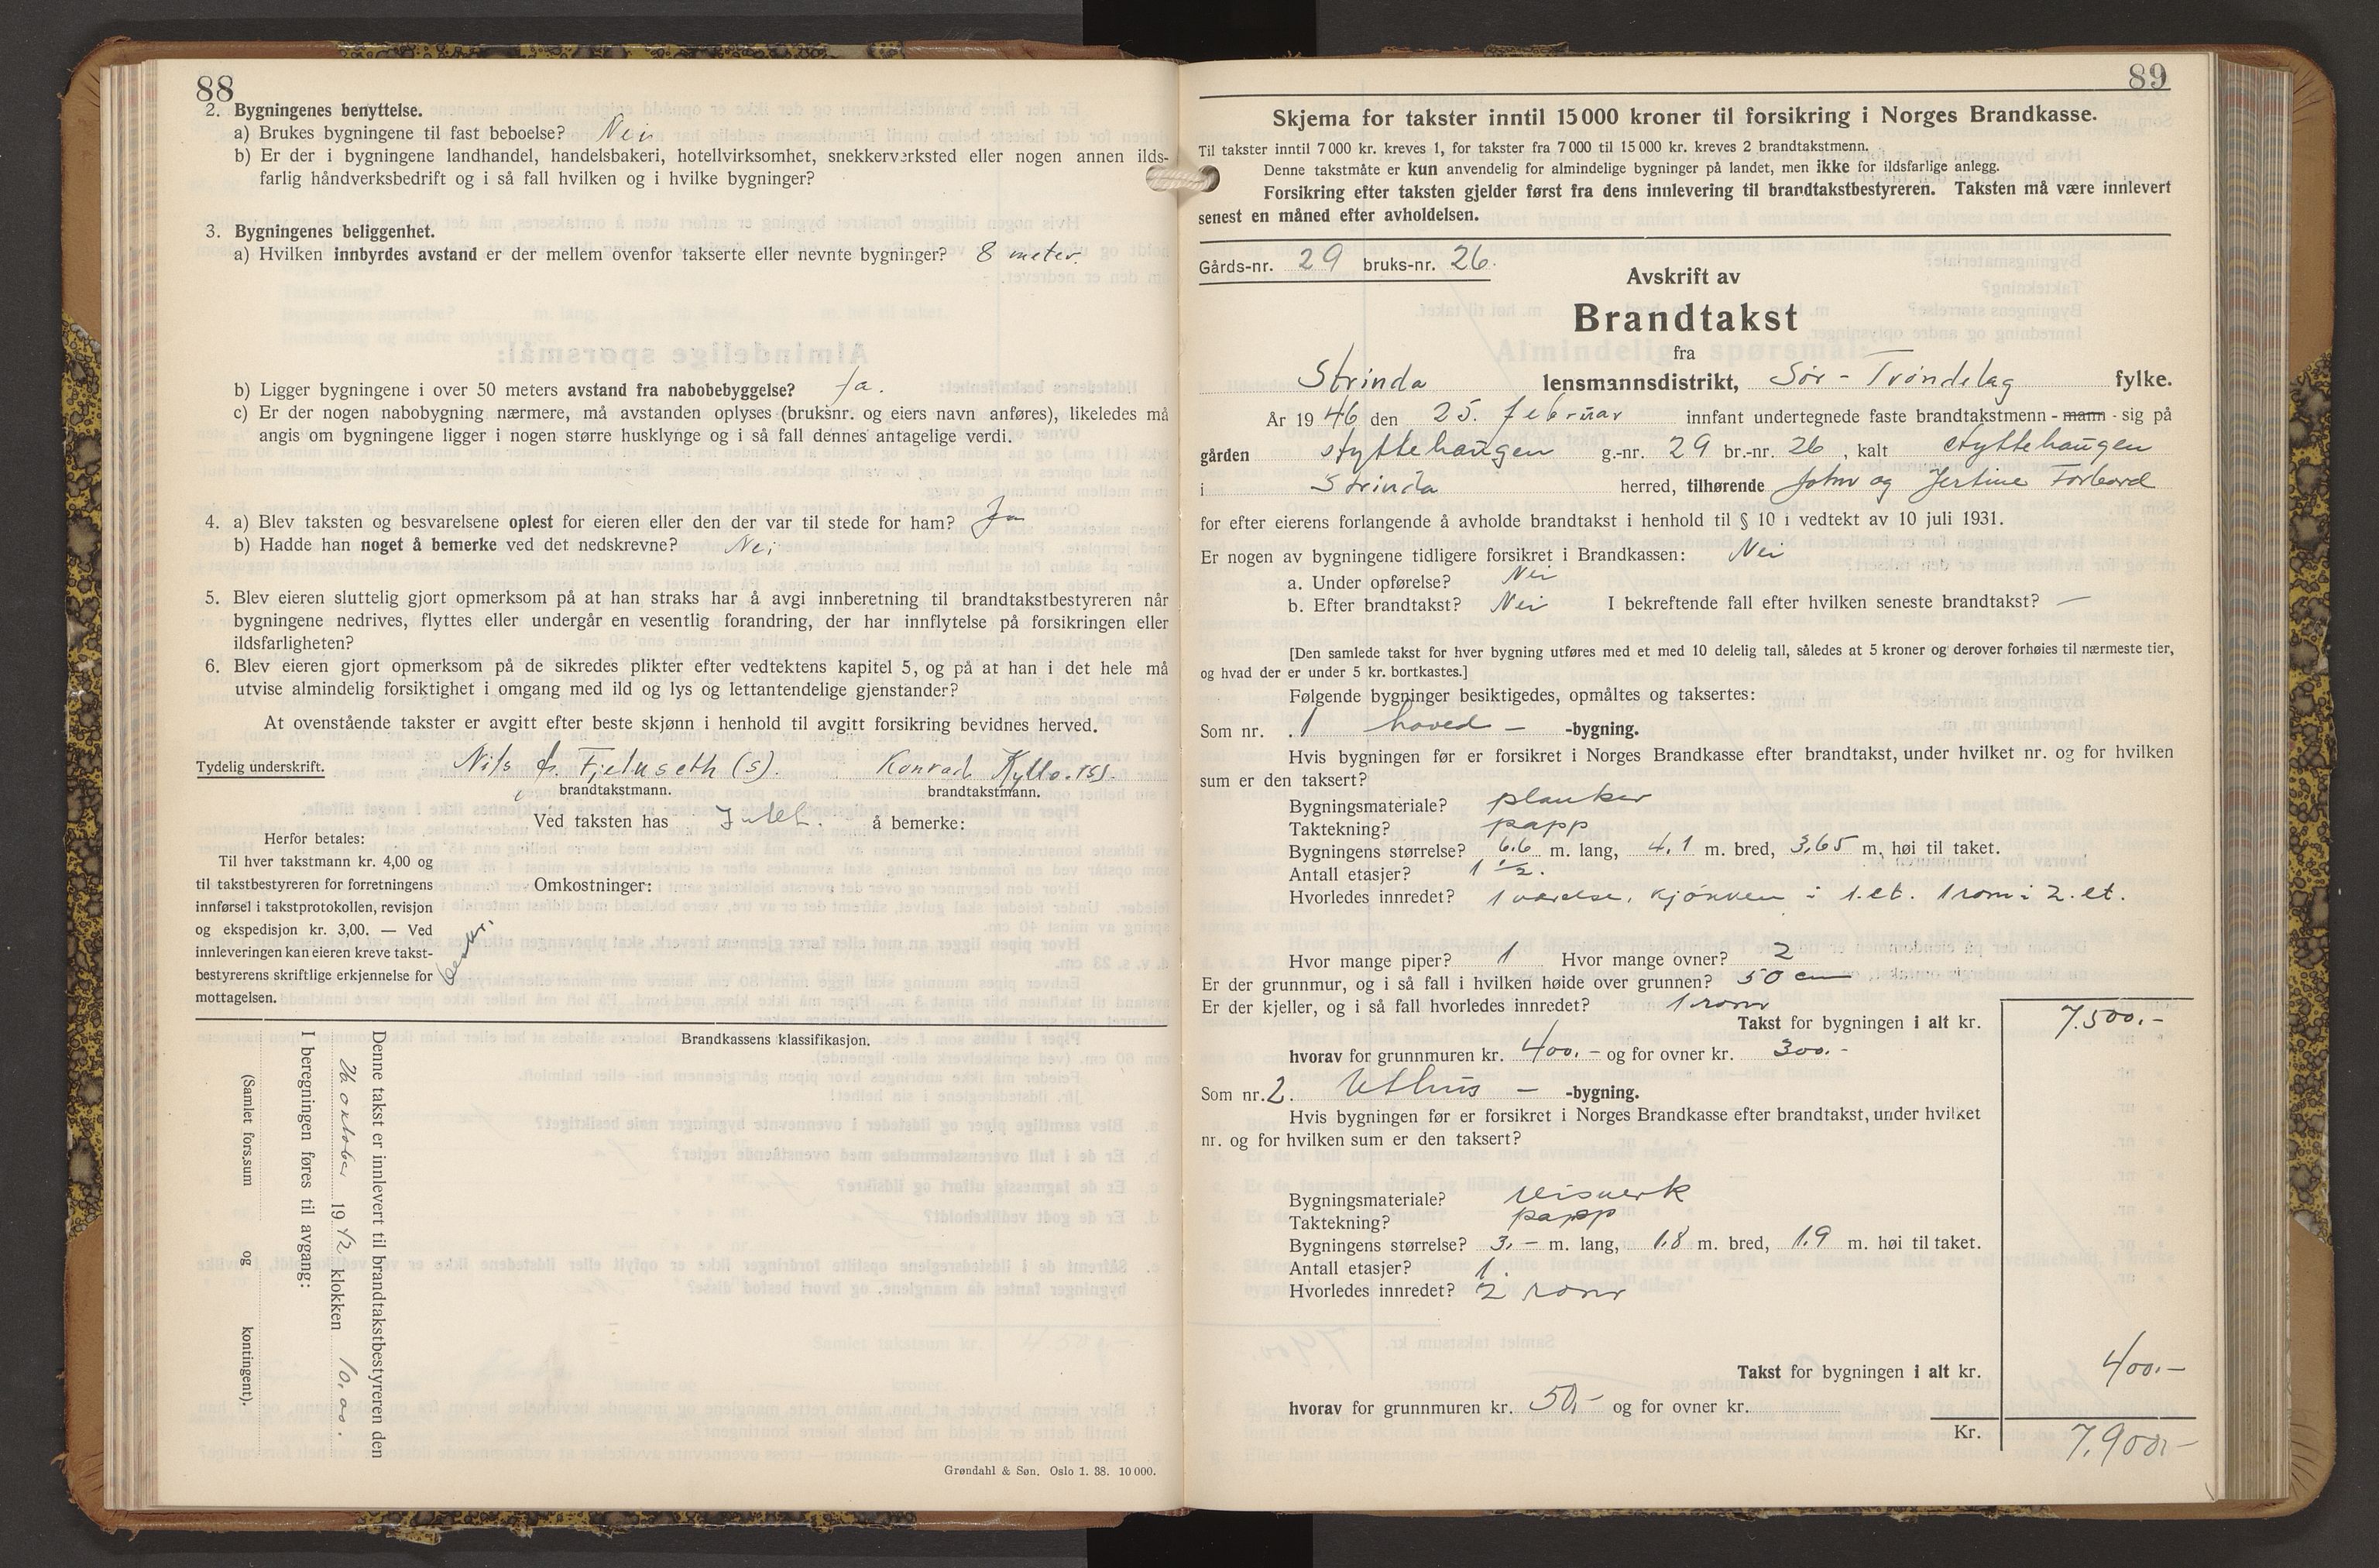 88
2. Bygningenes benyttelse.
a) Brukes bygningene til fast beboelse? Nei
b) Er der i bygningene landhandel, handelsbakeri, hotellvirksomhet, snekkerverksted eller nogen annen ilds-
farlig håndverksbedrift og i så fall hvilken og i hvilke bygninger?
3. Bygningenes beliggenhet.
a) Hvilken innbyrdes avstand er der mellem ovenfor takserte eller nevnte bygninger? 8 meter.
b) Ligger bygningene i over 50 meters avstand fra nabobebyggelse? Ja.
c) Er der nogen nabobygning nærmere, må avstanden oplyses (bruksnr. og eiers navn anføres), likeledes må
angis om bygningene ligger i nogen større husklynge og i så fall dennes antagelige verdi.
4. a) Blev taksten og besvarelsene oplest for eieren eller den der var til stede for ham? Ja
b) Hadde han noget å bemerke ved det nedskrevne? Nei
5. Blev eieren sluttelig gjort opmerksom på at han straks har å avgi innberetning til brandtakstbestyreren når
bygningene nedrives, flyttes eller undergår en vesentlig forandring, der har innflytelse på forsikringen eller
ildsfarligheten?
6. Blev eieren gjort opmerksom på de sikredes plikter efter vedtektens kapitel 5, og på at han i det hele må
utvise almindelig forsiktighet i omgang med ild og lys og lettantendelige gjenstander?
At ovenstående takster er avgitt efter beste skjønn i henhold til avgitt forsikring bevidnes herved.
Tydelig underskrift. Nils Fjelnseth (s). Konrad Kyllo. (s).
brandtakstmann. brandtakstmann.
Ved taksten has Intet. å bemerke:
Herfor betales:
Til hver takstmann kr. 4,00 og
til takstbestyreren for forretningens
innførsel i takstprotokollen, revisjon
og ekspedisjon kr. 3,00. — Ved
innleveringen kan eieren kreve takst-
bestyrerens skriftlige erkjennelse for
mottagelsen.
Omkostninger:
Brandkassens klassifikasjon.
Denne takst er innlevert til brandtakstbestyreren den
26 oktober 1942 klokken 10,00.
I beregningen føres til avgang:
(Samlet fors.sum og kontingent).
Grøndahl & Søn. Oslo 1. 38. 10 000.
89
Skjema for takster inntil 15 000 kroner til forsikring i Norges Brandkasse.
Til takster inntil 7 000 kr. kreves 1, for takster fra 7 000 til 15 000 kr. kreves 2 brandtakstmenn.
Denne takstmåte er kun anvendelig for almindelige bygninger på landet, men ikke for ildsfarlige anlegg.
Forsikring efter taksten gjelder først fra dens innlevering til brandtakstbestyreren. Taksten må være innlevert
senest en måned efter avholdelsen.
Gårds-nr. 29 bruks-nr. 26.
Avskrift av
Brandtakst
fra
Strinda lensmannsdistrikt, Sør-Trøndelag fylke.
År 1946 den 25. februar innfant undertegnede faste brandtakstmenn - mann - sig på
gården Styttehaugen g.-nr. 29 br.-nr. 26, kalt Styttehaugen
i Strinda herred, tilhørende John og Jertine Forbord
for efter eierens forlangende å avholde brandtakst i henhold til § 10 i vedtekt av 10 juli 1931.
Er nogen av bygningene tidligere forsikret i Brandkassen: Nei
a. Under opførelse? Nei
b. Efter brandtakst? Nei I bekreftende fall efter hvilken seneste brandtakst? —
[Den samlede takst for hver bygning utføres med et med 10 delelig tall, således at 5 kroner og derover forhøies til nærmeste tier,
og hvad der er under 5 kr. bortkastes.]
Følgende bygninger besiktigedes, opmåltes og taksertes:
Som nr. 1 hoved - -bygning.
Hvis bygningen før er forsikret i Norges Brandkasse efter brandtakst, under hvilket nr. og for hvilken
sum er den taksert?
Bygningsmateriale? planker
Taktekning? papp
Bygningens størrelse? 6.6 m. lang, 4.1 m. bred, 3,65 m. høi til taket.
Antall etasjer? 1 ½.
Hvorledes innredet? 1 værelse, kjøkken i 1. et. 1 rom i 2. et.
Hvor mange piper? 1 Hvor mange ovner? 2
Er der grunnmur, og i så fall i hvilken høide over grunnen? 50 cm
Er der kjeller, og i så fall hvorledes innredet? 1 rom
Takst for bygningen i alt kr. 7.500.-
hvorav for grunnmuren kr. 400.- og for ovner kr. 300.-
Som nr. 2. Uthus - -bygning.
Hvis bygningen før er forsikret i Norges Brandkasse efter brandtakst, under hvilket
nr. og for hvilken sum er den taksert?
Bygningsmateriale? reisverk
Taktekning? papp
Bygningens størrelse? 3.- m. lang, 1.8 m. bred, 1.9 m. høi til taket.
Antall etasjer? 1.
Hvorledes innredet? 2 rom
Takst for bygningen i alt kr. 400.-
hvorav for grunnmuren kr. 50,- og for ovner kr.
Kr. 7.900.-